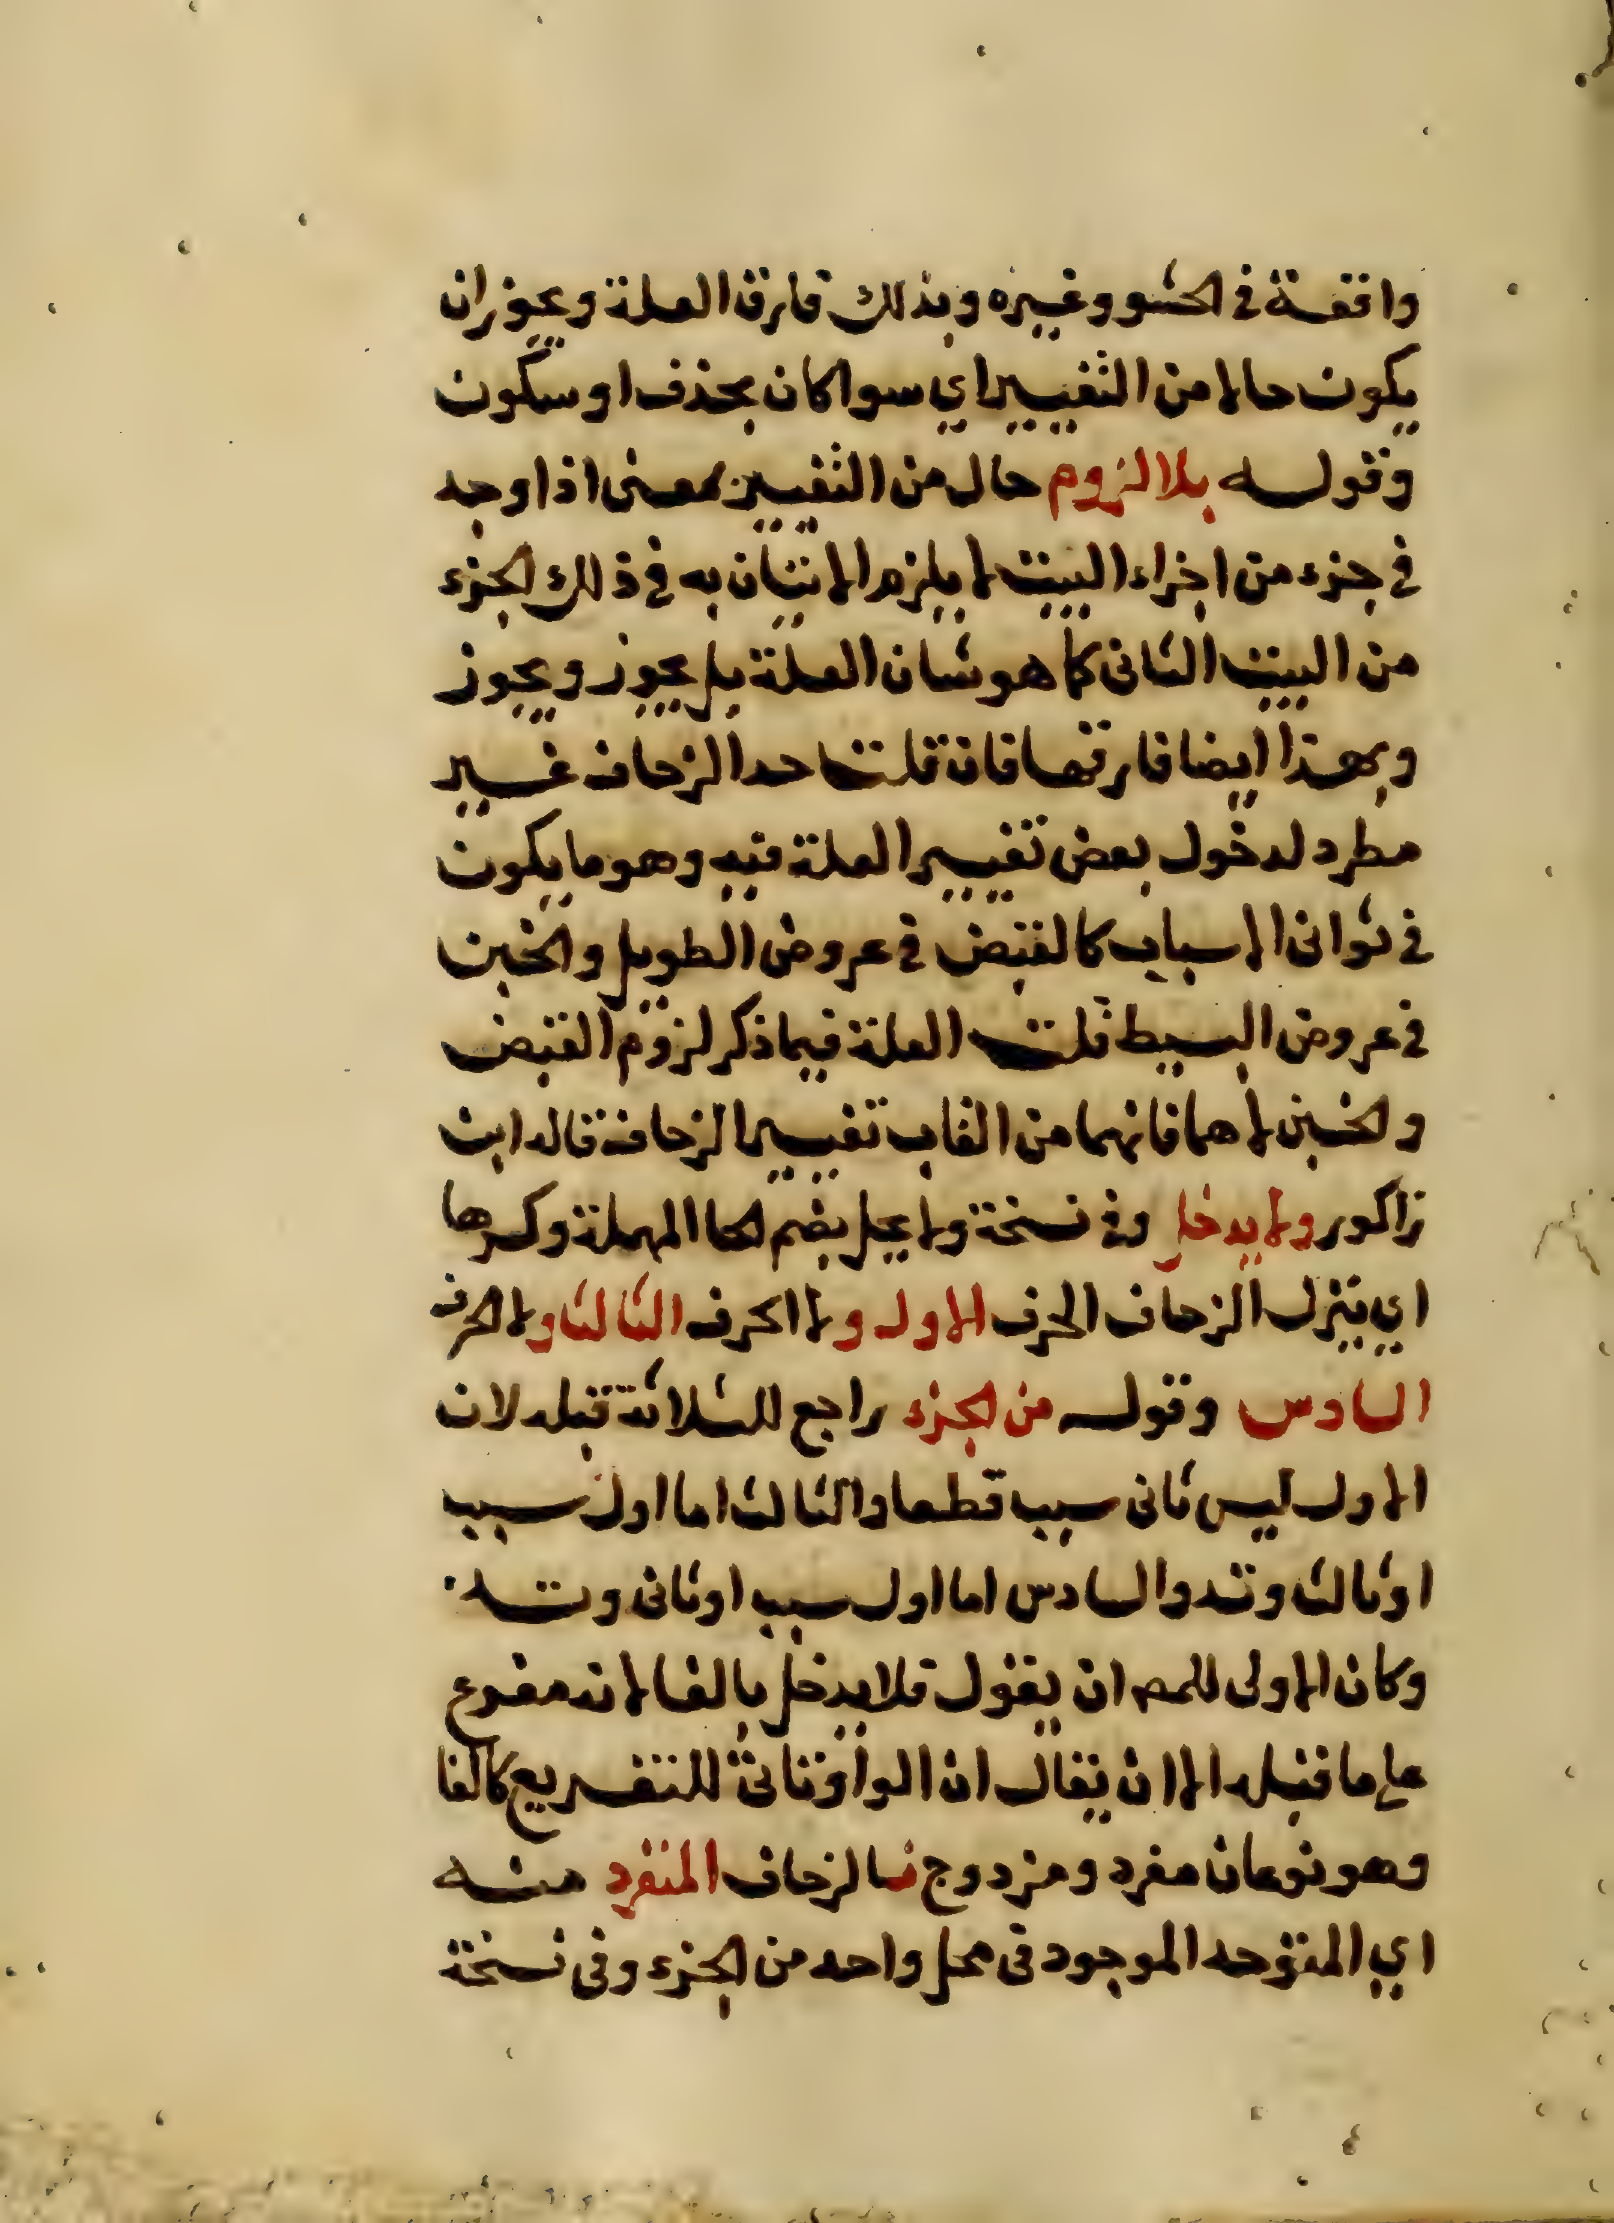 واقعة في الحشو وغيره وبذلك فارق العلة ويجوز ان
يكون حالا من التغيير اي سوا كان بحذف او سكون
وقوله بلا لزوم حال من التغيير بمعنى اذا وجد
في جزء من اجزاء البيت لا يلزم الاتيان به في ذلك الجزء
من البيت الثانى كما هو شان العلة بل يجوز ويجوز
وبهذا ايضا فارقها فان قلت حد الزحاف غير
مطرد لدخول بعض تغيير العلة فيه وهو ما يكون
في ثوانى الاسباب كالقبض في عروض الطويل والخبن
في عروض البسيط قلت العلة فيما ذكر لزوم القبض
والخبن لا هما فانهما من القاب تغيير الزحاف قاله ابن
زاكور ولا يدخل وفي نسخة ولا يحل بضم الحا المهملة وكسرها
اي ينزل الزحاف الحرف الاول ولا الحرف الثالث ولا الحرف
السادس وقوله من الجزء راجع للثلاثة قبله لان
الاول ليس ثانى سبب قطعا والثالث اما اول سبب
او ثالث وتد والسادس اما اول سبب او ثانى وتد
وكان الاولى للمصـ ان يقول فلا يدخل بالفا لانه مفرع
على ما قبله الا ان يقال ان الواو تاتى للتفريع كالفا
وهو نوعان مفرد ومزدوج فالزحاف المنفرد منه
اي المتوحد الموجود فى محل واحد من الجزء وفى نسخة